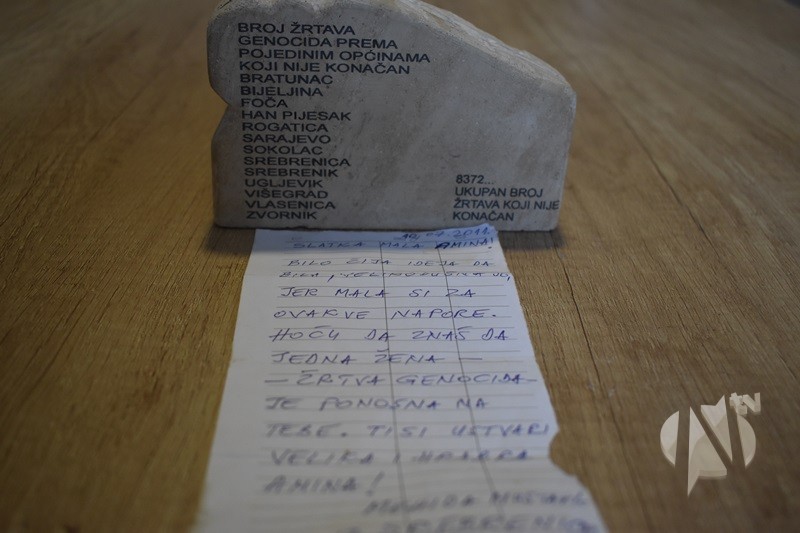 BROJ ŽRTAVA
GENOCIDA PREMA
POJEDINIM OPĆINAMA
KOJI NIJE KONAČAN
BRATUNAC
BIJELJINA
FOČA
HAN PIJESAK
ROGATICA
SARAJEVO
SOKOLAC
SREBRENICA
SREBRENIK
UGLJEVIK
VIŠEGRAD
VLASENICA
ZVORNIK
8372...
UKUPAN BROJ
ŽRTAVA KOJI NIJE
KONAČAN
SLATKA MALA AMINA!
BILO ČIJA IDEJA DA
BILA,
JER MALA SI ZA
OVAKVE NAPORE.
HOĆU DA ZNAŠ DA
JEDNA ŽENA –
– ŽRTVA GENOCIDA –
JE PONOSNA NA
TEBE. TI SI USTVARI
VELIKA I HRABRA
AMINA!
SREBRENICA
N tv